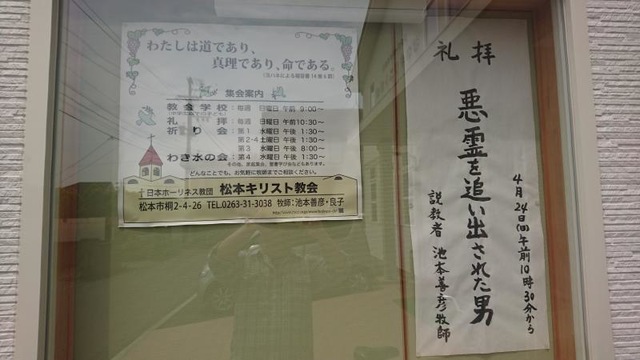 わたしは道であり、
真理であり、命である。
集会案内
教会学校：毎週 日曜日 午前 9:00～
礼拝：毎週 日曜日 午前10:30～
祈り会：第1 水曜日 午後 1:30～
第2・4土曜日 午後 1:30～
第3 水曜日 午後 8:00～
わき水の会：第4 水曜日 午後 1:30～
どんなことでも、お気軽に牧師までご相談ください。
日本ホーリネス教団 松本キリスト教会
松本市桐2-4-26 TEL.0263-31-3038 牧師：池本善彦・良子
礼拝
悪霊を追い出された男
4月24日(日)午前10時30分から
説教者 池本善彦牧師